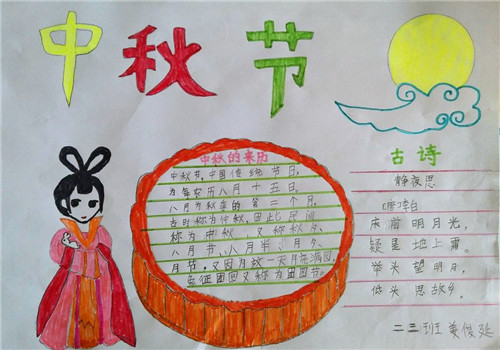 中秋节
中秋的来历
中秋节,中国传统节日,
为每农历八月十五日,
八月为秋季的第二个月,
古时称为仲秋,因此民间
称为中秋,又称秋夕、
八月节、八月半、月夕、
月节,又因一天月亮满圆,
象征团圆又称为团圆节。
古诗
静夜思
李白
床前明月光,
疑是地上霜。
举头望明月,
低头思故乡。
二三班姜俊延